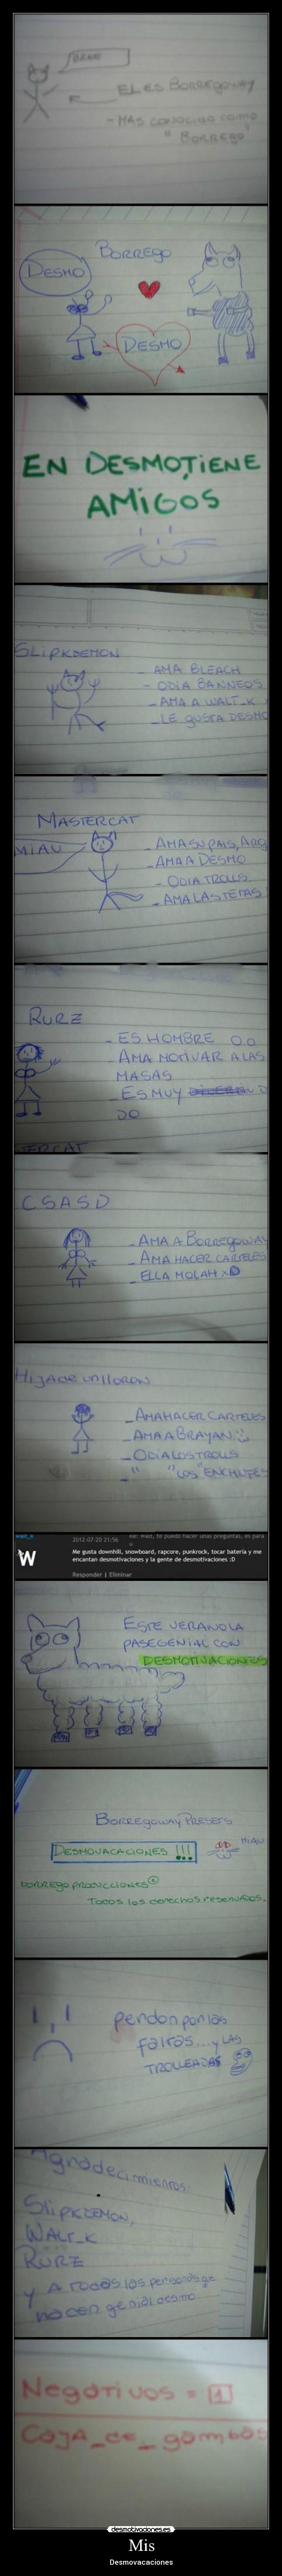 EL ES BORREGOWAY
- MAS CONOCIDO COMO
" BORREGO"
BORREGO
DESMO
DESMO
EN DESMO, TIENE
AMIGOS
SLIPKDEMON
- AMA BLEACH
- ODIA BANNEOS
- AMA A WALT_K
- LE GUSTA DESMO
MASTERCAT
MIAU
- AMA SU PAIS, ARG
- AMA A DESMO
- ODIA TROLLS
- AMA LAS TETAS
RURZ
- ES HOMBRE O.O
- AMA MOTIVAR A LAS
MASAS
- ES MUY
DO
CSASD
- AMA A BORREGOWAY
- AMA HACER CARTELES
- ELLA MOLAH xD
Hija de un lloron
- AMA HACER CARTELES
- AMA A BRAYAN :)
- ODIA LOS TROLLS
- " "LOS ENCHUFES
walt_k
2012-07-20 21:56
Re: walt, te puedo hacer unas preguntas, es para
W
Me gusta downhill, snowboard, rapcore, punkrock, tocar bateria y me
encantan desmotivaciones y la gente de desmotivaciones :D
Responder | Eliminar
ESTE VERANO LA
PASE GENIAL CON
DESMOTIVACIONES
BORREGOWAY PRESETS
DESMOVACACIONES !!!
MIAU
BORREGO PRODUCCIONES
Todos los derechos reservados.
perdon por las
faltas... y LAS
TROLLEADAS
Agradecimientos:
SlipKDEMON,
WALT_K
RURZ
y A todas las personas qe
hacen genial desmo
Negativos = 1
Caja_de_gambas
desmotivaciones.es
Mis
Desmovacaciones